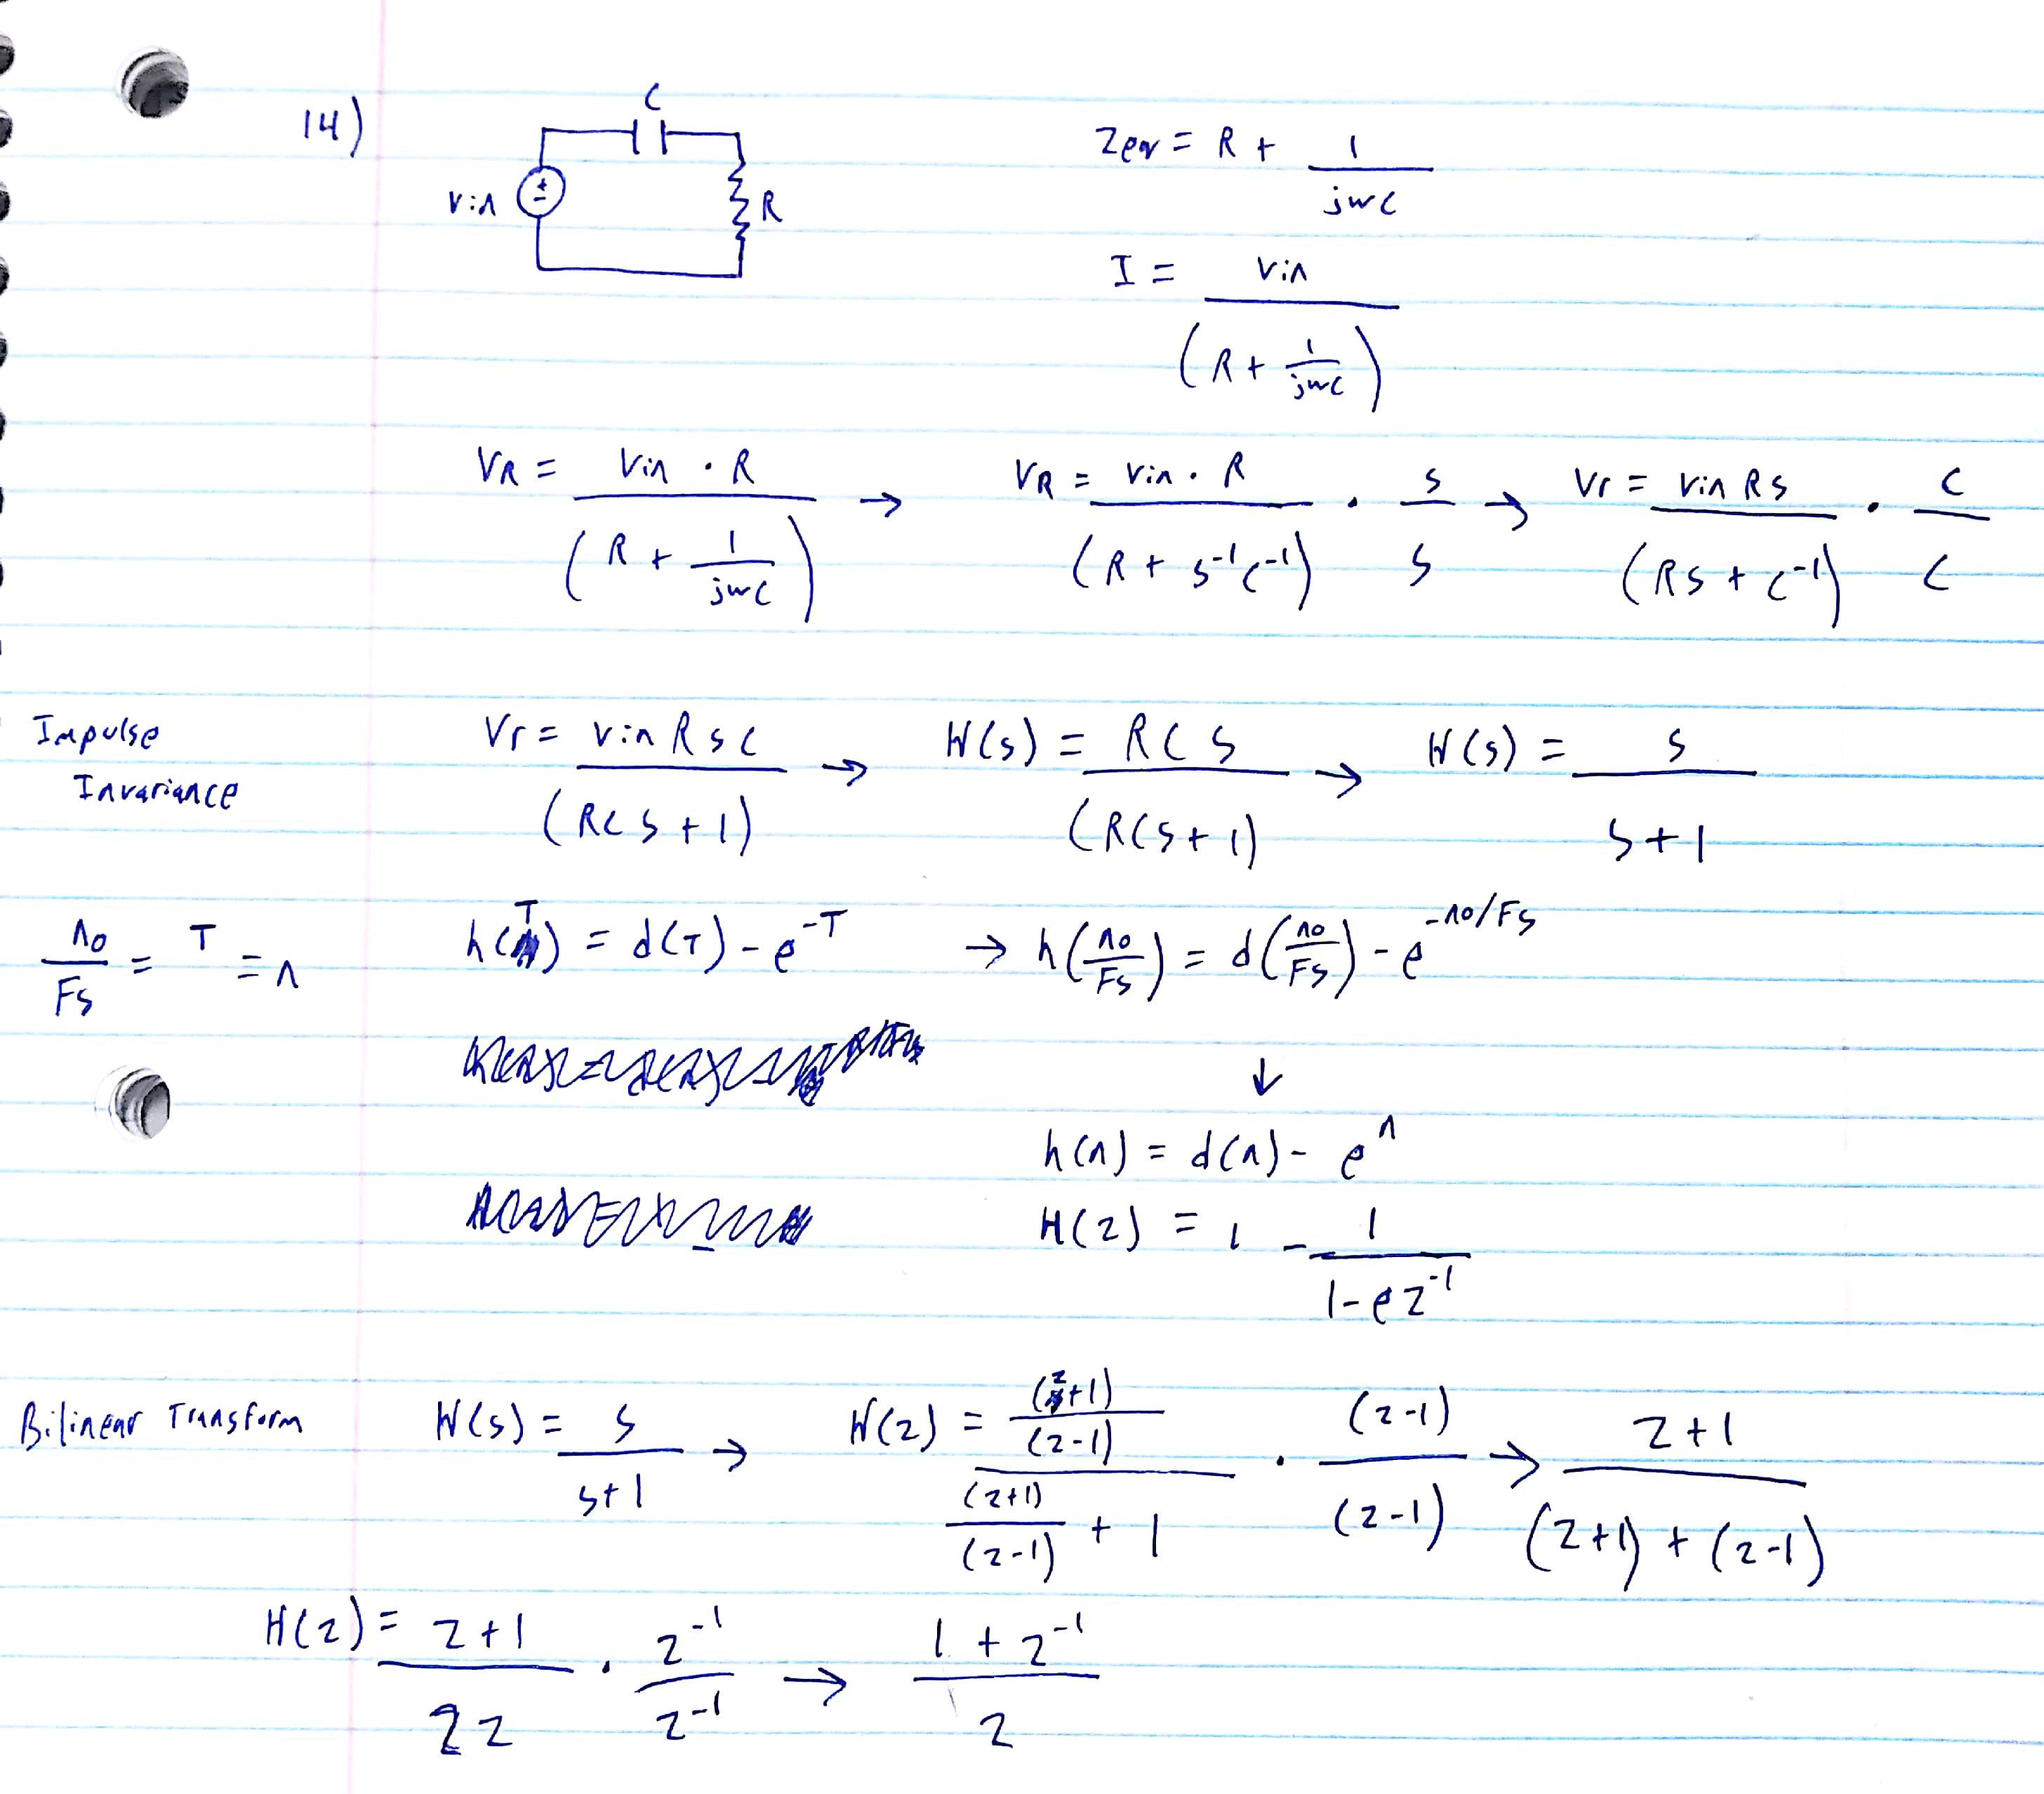 14)
C
Vin
R
Zeq = R + 1/jwC
I = Vin/(R + 1/jwC)
VR = Vin · R/(R + 1/jwC) → VR = Vin · R/(R + s⁻¹C⁻¹) · s/s → Vr = Vin Rs/(Rs + C⁻¹) · C/C
Impulse Invariance
Vr = Vin R s C/(RCs + 1) → H(s) = RCs/(RCs + 1) → H(s) = s/s+1
no/Fs = T = n
h(T) = d(T) - e^-T → h(no/Fs) = d(no/Fs) - e^-no/Fs
↓
h(n) = d(n) - e^n
H(z) = 1 - 1/1-ez⁻¹
Bilinear Transform
H(s) = s/s+1 → H(z) = (z+1)/(z-1)/(z+1)/(z-1) + 1 · (z-1)/(z-1) → z+1/(z+1) + (z-1)
H(z) = z+1/2z · z⁻¹/z⁻¹ → 1 + z⁻¹/2